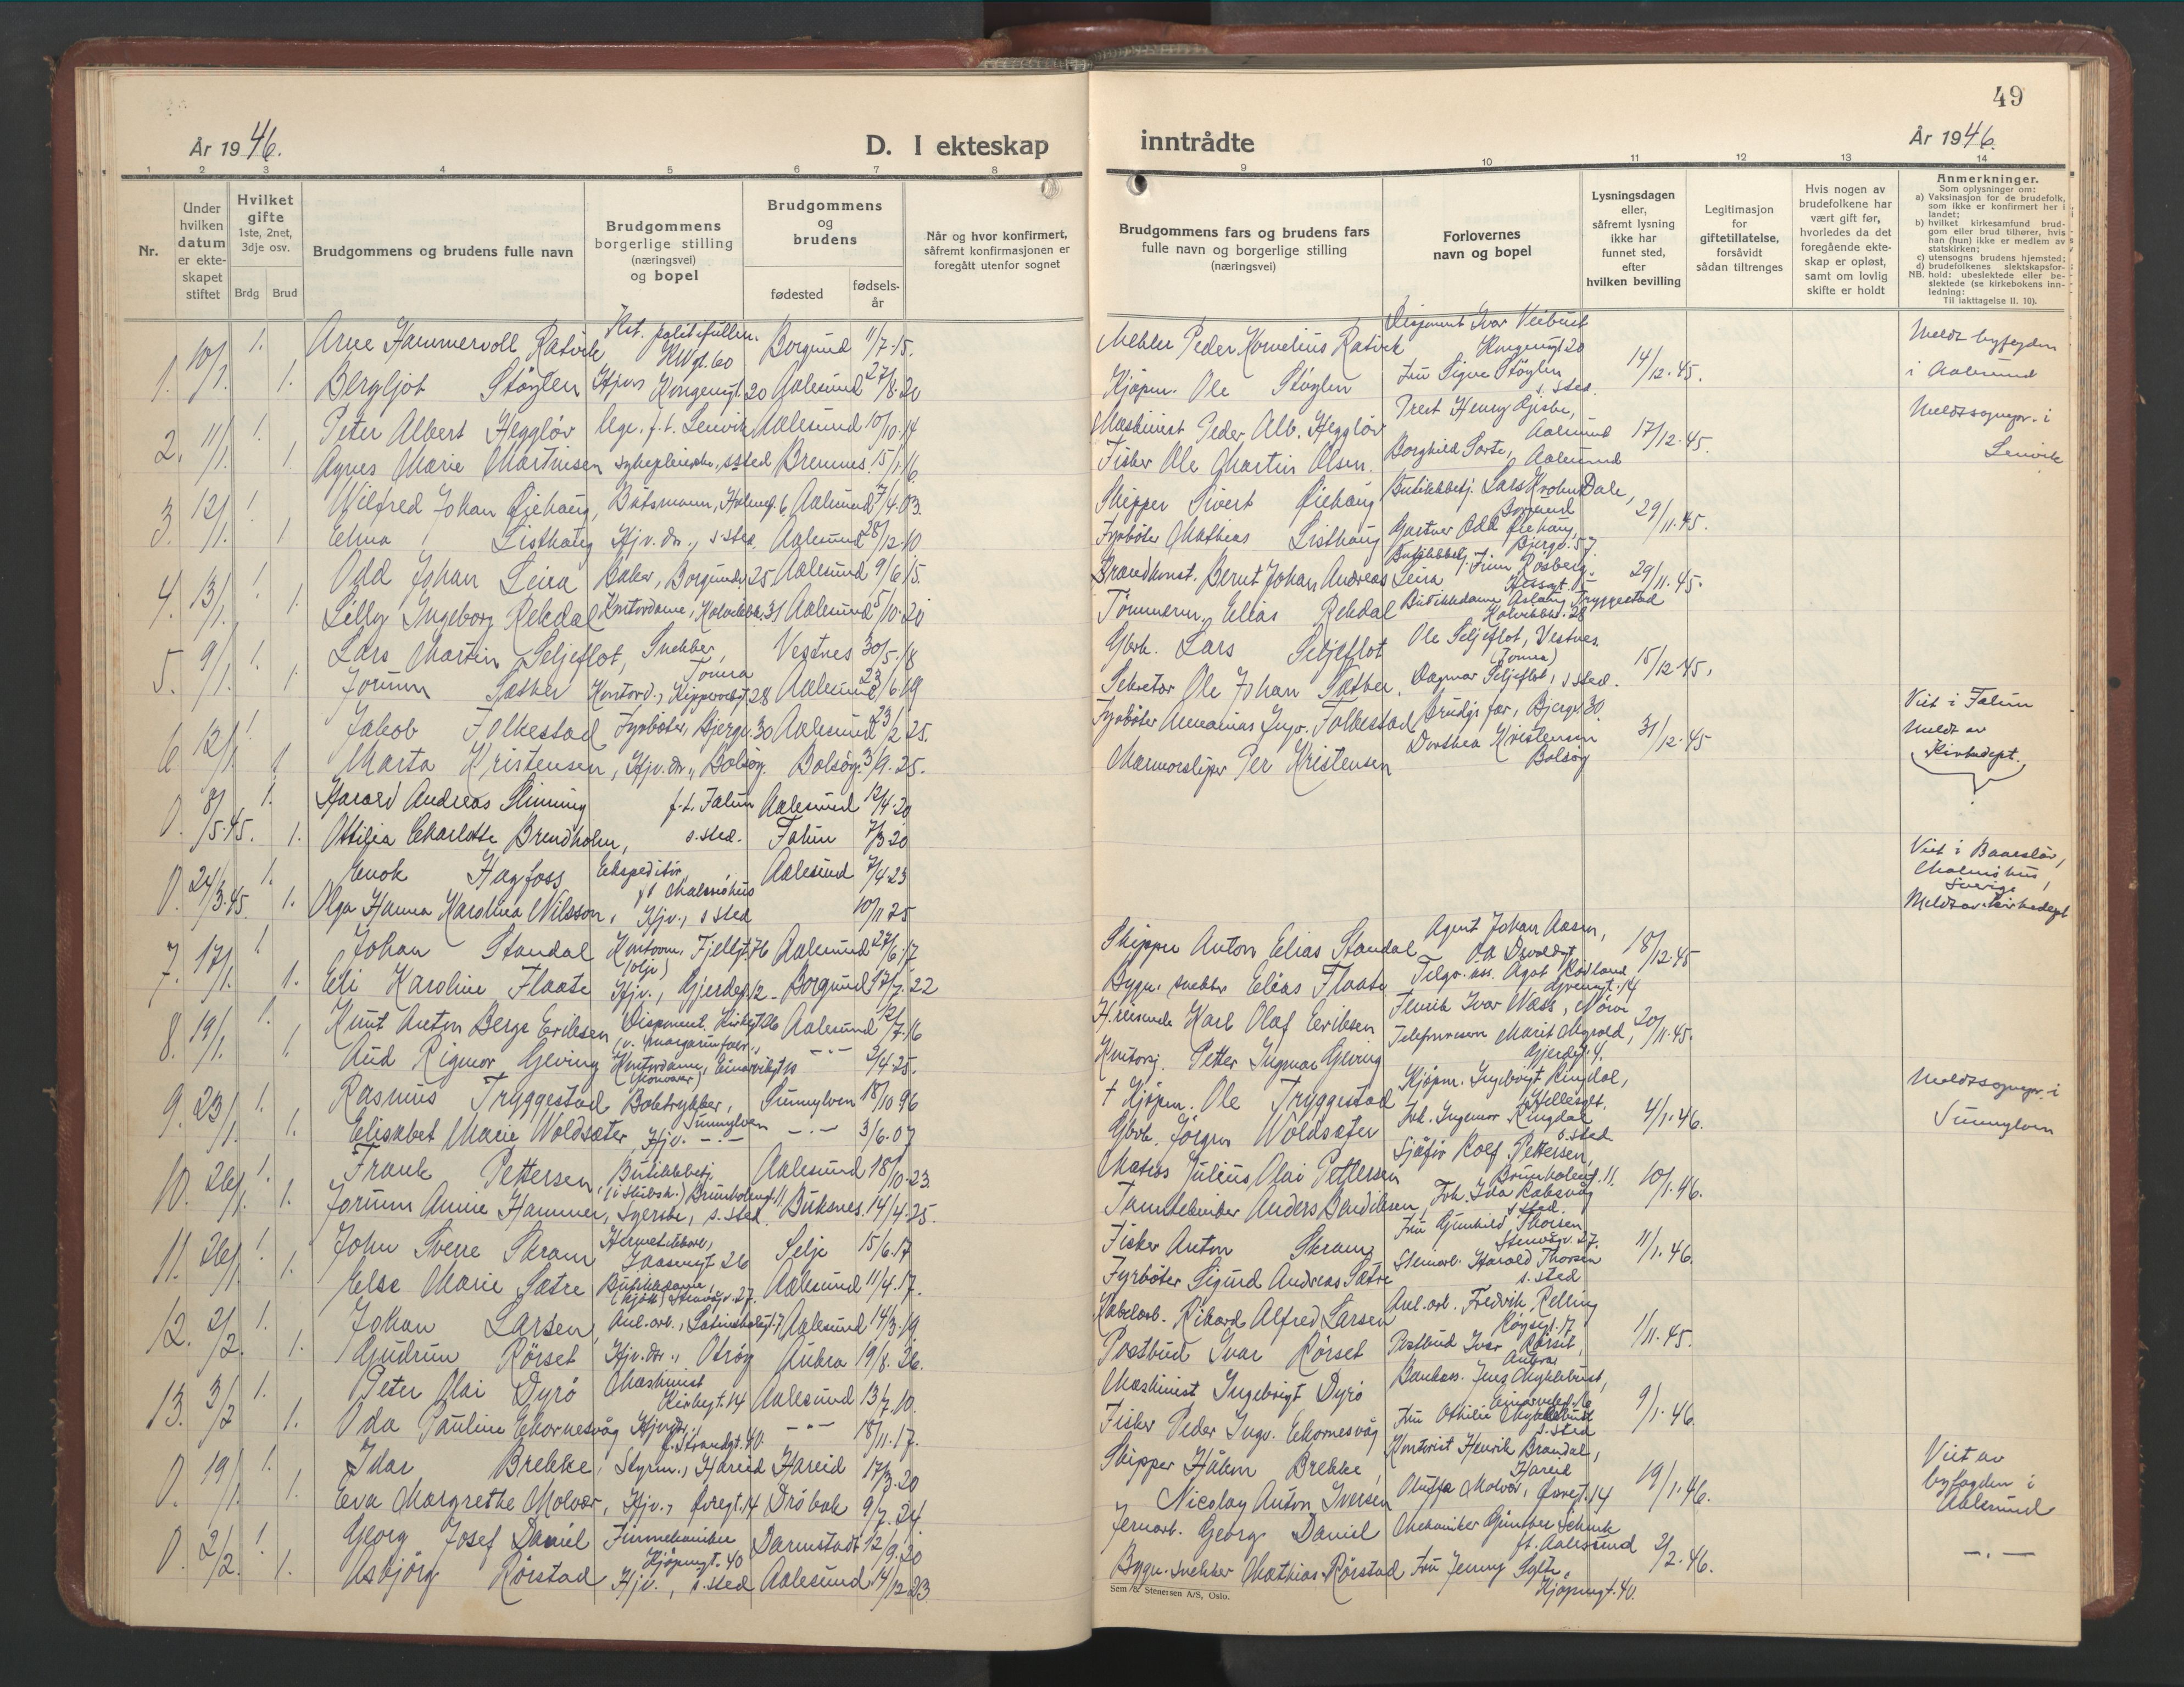 49
År 1946.
D. I ekteskap inntrådte
År 1946.
1 2 3 4 5 6 7 8 9 10 11 12 13 14
Nr.
Under hvilken datum er ekteskapet stiftet
Hvilket gifte 1ste, 2net, 3dje osv.
Brdg Brud
Brudgommens og brudens fulle navn
Brudgommens borgerlige stilling (næringsvei) og bopel
Brudgommens og brudens
fødested
fødselsår
Når og hvor konfirmert, såfremt konfirmasjonen er foregått utenfor sognet
Brudgommens fars og brudens fars fulle navn og borgerlige stilling (næringsvei)
Forlovernes navn og bopel
Lysningsdagen eller, såfremt lysning ikke har funnet sted, efter hvilken bevilling
Legitimasjon for giftetillatelse, forsåvidt sådan tiltrenges
Hvis nogen av brudefolkene har vært gift før, hvorledes da det foregående ekteskap er opløst, samt om lovlig skifte er holdt
Anmerkninger.
Som oplysninger om:
a) Vaksinasjon for de brudefolk, som ikke er konfirmert her i landet;
b) hvilket kirkesamfund brudgom eller brud tilhører, hvis han (hun) ikke er medlem av statskirken;
c) utensogns brudens hjemsted;
d) brudefolkenes slektskapsforhold: ubeslektede eller beslektede (se kirkebokens innledning:
NB.
Til iakttagelse II. 10).
1. 10/1. 1. Arne Hammervoll Ratvik Borgund 11/7.15. Peder Kornelius Ratvik Disponent Ivar Veibust Kongensgt 20 14/12.45. Meldt byfogden
1. Bergljot Støylen Hjv. Kongensgt. 20 Aalesund 27/8.20 Kjøpm. Ole Støylen Fru Signe Støylen s. sted i Aalesund
2. 11/1. 1. Peter Albert Hegglöv lege, f.t. Lenvik Aalesund 10/10.14 Maskinist Peder Alb. Hegglöv Prest Henry Gjesbø, Aalesund 17/12.45. Meldt sognepr. i
1. Agnes Marie Martinsen sykepleierske, s sted Bremnes 15/1.16. Fisker Ole Martin Olsen. Borghild Sørte, Aalesund Lenvik
3. 12/1. 1. Vilfred Johan Øiehaug, Båtsmann, Aalesund 7/4.03. Skipper Sivert Øiehaug Butikkbetj. Lars Krohn Dale, Borgund 29/11.45.
1 Elma Listhaug Hjv. dr., s. sted, Aalesund 28/12.10 Fyrbøter Mathias Listhaug Gartner Odd Øiehaug, Bjergv. 57.
4. 13/1. 1. Odd Johan Leira Baker, Borgundv. 25 Aalesund 9/6.15. Brandkonst. Bernt Johan Andreas Leira Butikkbetj. Finn Rosberg. 29/11.45.
1. Lilly Ingeborg Rekdal Kontordame, 31 Aalesund 5/10.20 Tømmerm. Elias Rekdal Butikkdame Aslaug Tryggestad
5. 9/1. 1. Lars Martin Seljeflot, Snekker, Tomra Vestnes 30/5.18 Gbrk. Lars Seljeflot Ole Seljeflot, Vestnes. (Tomra) 15/12.45.
1. Jorunn Sæther Kontord., 28 Aalesund 23/6.19 Sekretær Ole Johan Sæther, Dagmar Seljeflot, s sted.
6 12/1. 1. Jakob Folkestad Fyrbøter, Bjergv. 30 Aalesund 23/2.25. Fyrbøter Ananias Ingv. Folkestad Brudgs far, Bjergv. 30. 31/12.45
1 Marta Kristensen, Hjv. dr., Bolsøy. Bolsøy. 3/9.25. Marmorsliper Per Kristensen Dorthea Kristensen Bolsøy
0. 8/5.45. 1. Harald Andreas Slinning f.t. Falun Aalesund 12/4.20 Viet i Falun Meldt av Kirkedept.
1. Ottilia Charlotte Brendholm, s. sted. Falun 7/3 20
0. 24/3.45. 1. Enok Hagfoss Ekspeditør, Malmöhus Aalesund 7/4 23 Viet i Baarslöv, Malmöhus, Sverige
1. Olga Hanna Karolina Nilsson, Hjv., s sted 10/11 25 Meldt av Kirkedept
7. 17/1. 1. Johan Standal Kontorm. (olje) Fjellgt. 76 Aalesund 27/6.17 Skipper Anton Elias Standal Agent Johan Aasen, 18/12.45
1. Eli Karoline Flaate Hjv., Gjerdegt. 12 Borgund 17/7.22 Bygn. snekker Elias Flaate Telgr. ass. Agot Rødland
8. 19/1. 1. Knut Anton Berge Eriksen Disponent, Kirkegt. 26 Aalesund 12/7.16 Karl Olaf Eriksen Henrik Ivar Wæss, 20/11.45.
1. Aud Rigmor Geving Kontordame, -"- 2/4.25. Kontorsj. Petter Ingmar Geving Telefonistinne Marit Myrold, Gjerdegt. 4.
9. 23/1. 1. Rasmus Tryggestad Boktrykker, Sunnylven Sunnylven 18/10 96 † Kjøpm. Ole Tryggestad Kjøpm. Ingebrigt Ringdal, Hellesylt. 4/1.46. Meldt sognepr. i
1. Elisabet Marie Woldsæter, Hjv. -"- -"- 3/6.07 Gbrk. Jörgen Woldsæter Frk. Ingunn Ringdal s. sted Sunnylven
10. 26/1. 1. Frank Pettersen, Butikkbetj. Brunholmgt. 11 Aalesund 18/10.23. Matros Julius Olai Pettersen Sjåfør Rolf Pettersen, Brunholmgt. 11. 10/1.46.
1. Jorunn Annie Hammer, Syerske, s. sted. Buksnes. 14/4.25. Tanntekniker Anders Bendiksen, Frk. Ida Rabesvåg s. sted
11. 26/1. 1. John Sverre Skram 26 Selje 15/6.17 Fisker Anton Skram Fru Gunhild Thorsen, Stenvågv. 27. 11/1.46.
1. Else Marie Sætre Butikkdame, Stenvågv. 27. Aalesund 11/4.17. Fyrbøter Sigurd Andreas Sætre Stenarb. Harald Thorsen s. sted
12. 2/2. 1. Johan Larsen, Anl. arb., Aalesund 14/3.19. Kabelarb. Rikard Alfred Larsen Anl. arb. Fredrik Relling 1/11.45.
1. Gudrun Rørset Hjv. dr., Otrøy Aukra 19/8.26. Postbud Ivar Rørset Postbud Ivar Rørset, Aukra
13. 3/2 1. Peter Olai Dyrø Maskinist Kirkegt. 14 Aalesund 13/7.10. Maskinist Ingebrigt Dyrø Bankass. Jens Myklebust, 9/1.46.
1. Oda Pauline Ekornesvåg Hjv. dr., Strandgt. 40. -"- 18/11.17. Fisker Peder Ingv. Ekornesvåg Fru Othilie Myklebust s. sted
0. 19/1. 1. Idar Brekke, Styrm., Hareid Hareid 17/3.20 Skipper Håkon Brekke, Kontorist Henrik Brandal, Hareid 19/1.46. Viet av
1. Eva Margrethe Molvær, Hjv., Øvregt. 14 Drøbak 9/7.24. Nicolay Anton Iversen Molvær, Øvregt. 14 byfogden i Aalesund
0. 2/2. 1. Georg Josef Daniel Finmekaniker Kjøpmgt. 40 Darmstadt 12/9.20 Jernarb. Georg Daniel Mekaniker Günther Schenk ft. Aalesund 2/2.46. -"-
1. Asbjørg Rørstad Hjv., s. sted Aalesund 14/12.23 Bygn. snekker Mathias Rørstad Fru Jenny Sylte, Kjøpmgt. 40.
Sem & Stenersen A/S, Oslo.